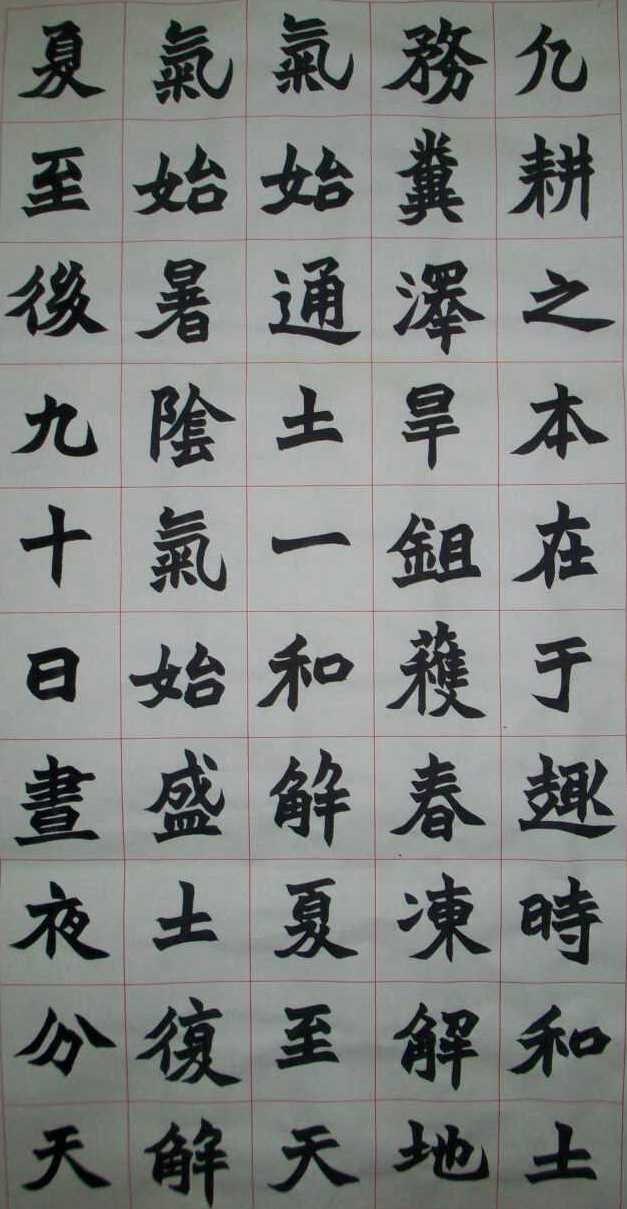 凡耕之本在于趣時和土
務糞澤旱鉏穫春凍解地
氣始通土一和解夏至天
氣始暑陰氣始盛土復解
夏至後九十日晝夜分天